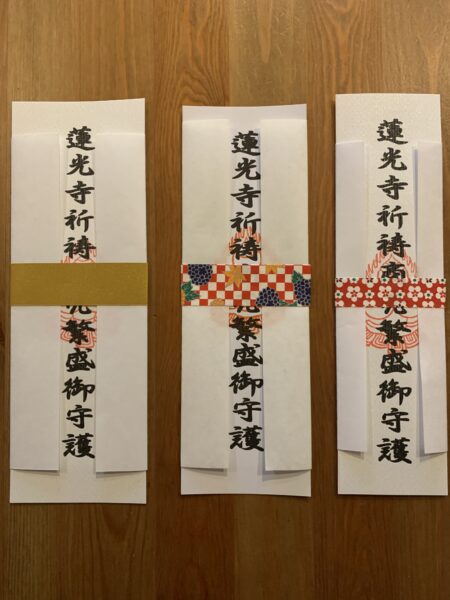 蓮光寺祈祷商 繁盛御守護
蓮光寺祈祷 繁盛御守護
蓮光寺祈祷 繁盛御守護